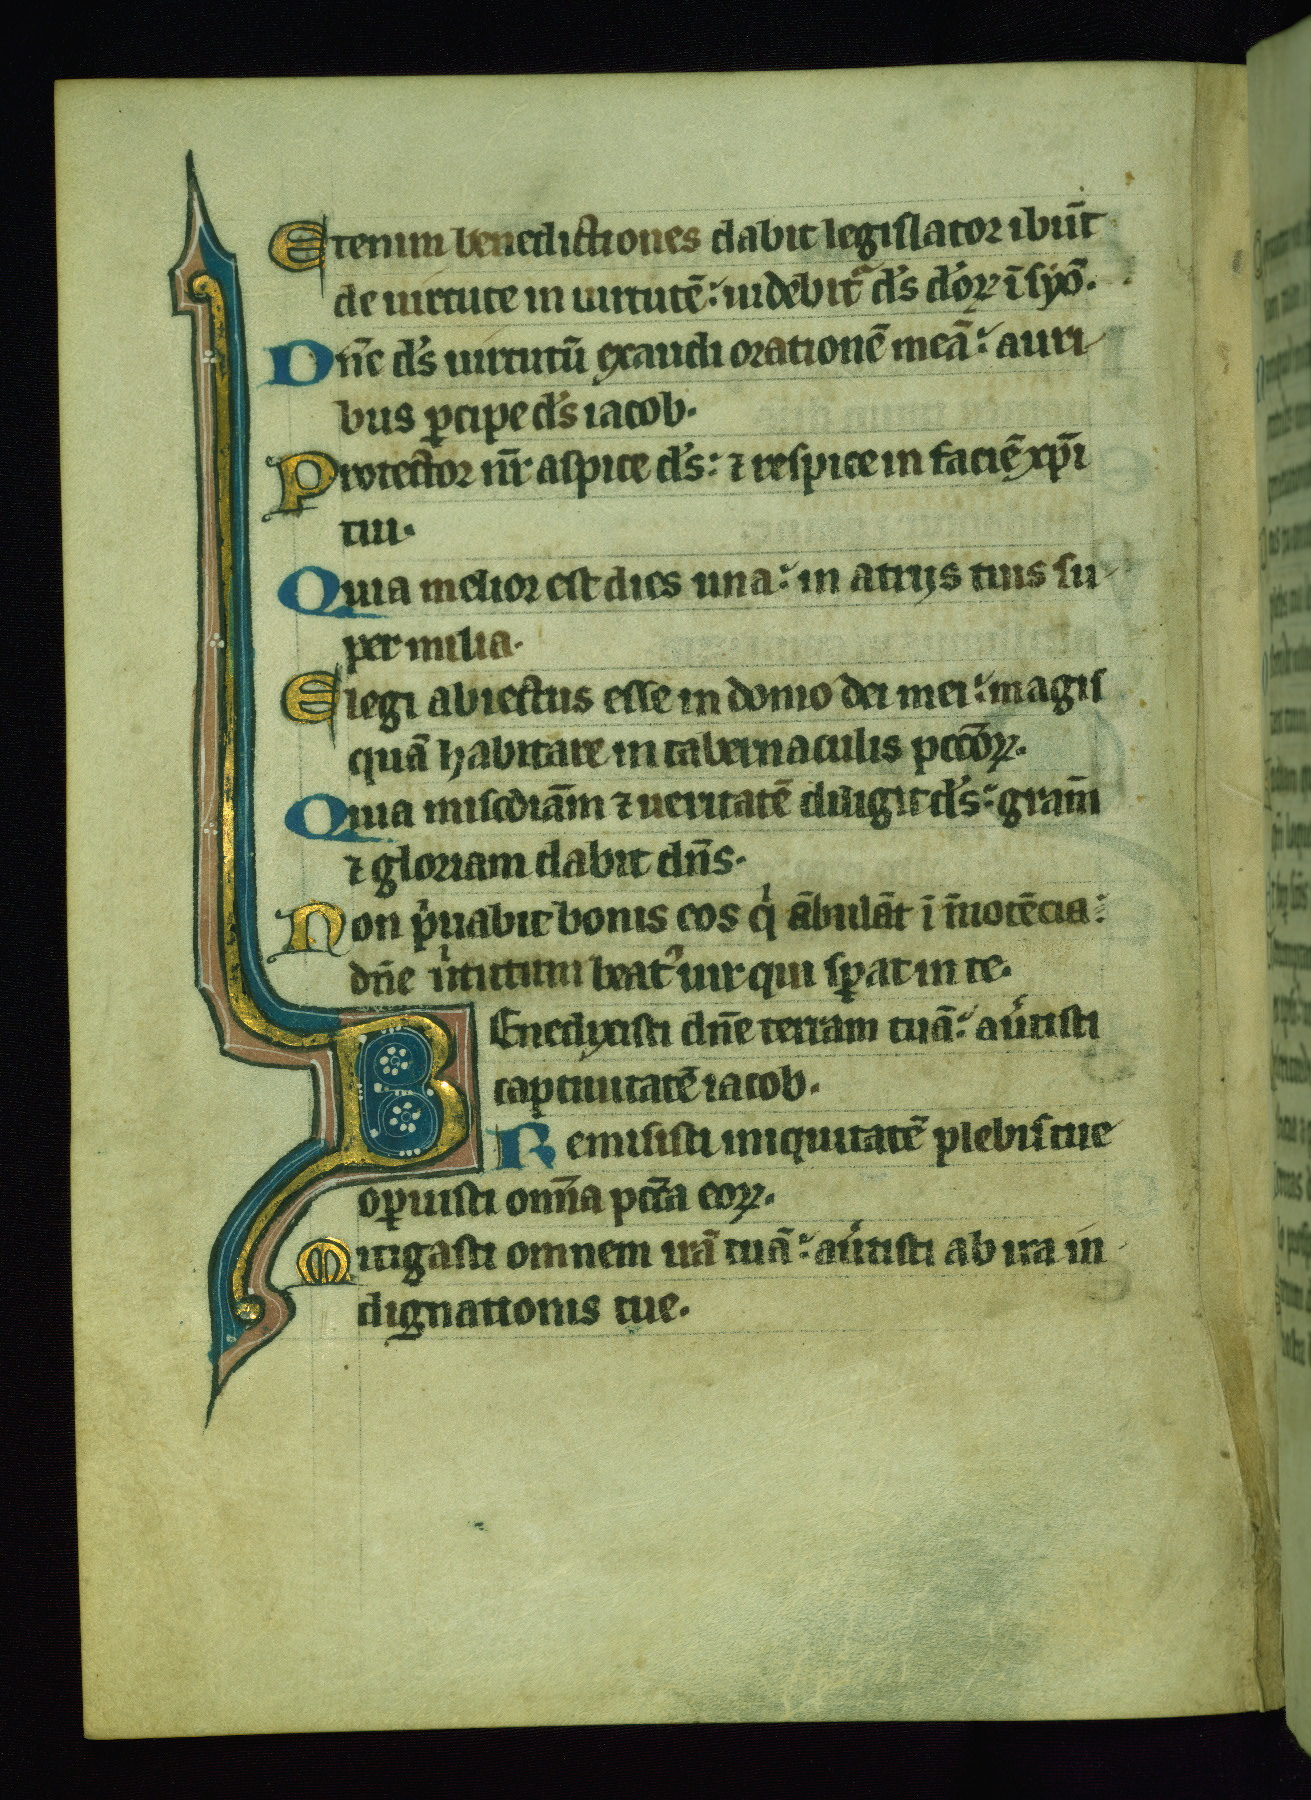 Etenim benedictiones dabit legislator ibūt
de uirtute in uirtutē: uidebit᷑ d̄s d̄oꝝ ī syō.
Dn̄e d̄s uirtutū exaudi orationē meā: auri
bus ꝑcipe d̄s iacob.
Protector nr̄ aspice d̄s: ⁊ respice in faciē xp̄i
tui.
Quia melior est dies una: in atrijs tuis su
per milia.
Elegi abiectus esse in domo dei mei: magis
quā habitare in tabernaculis pccōꝝ.
Quia miscdiām ⁊ ueritatē diligit d̄s: gram̄
⁊ gloriam dabit dn̄s.
Non pͥuabit bonis eos qͥ ābulāt ī īnocēcia:
dn̄e uͥtutum beatꝰ uir qui sꝑat in te.
Benedixisti dn̄e terram tuā: au͛tisti
captiuitatē iacob.
Remisisti iniquitatē plebis tue
oꝑuisti omn̄a pctā eoꝝ.
Mitigasti omnem irā tuā: au͛tisti ab ira in
dignationis tue.